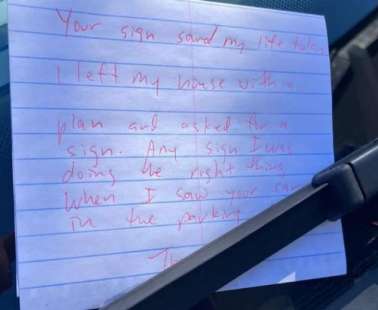 Your sign saved my life
I left my house with
plan and asked for a
sign. Any sign I was
doing the right thing
When I saw your
in the